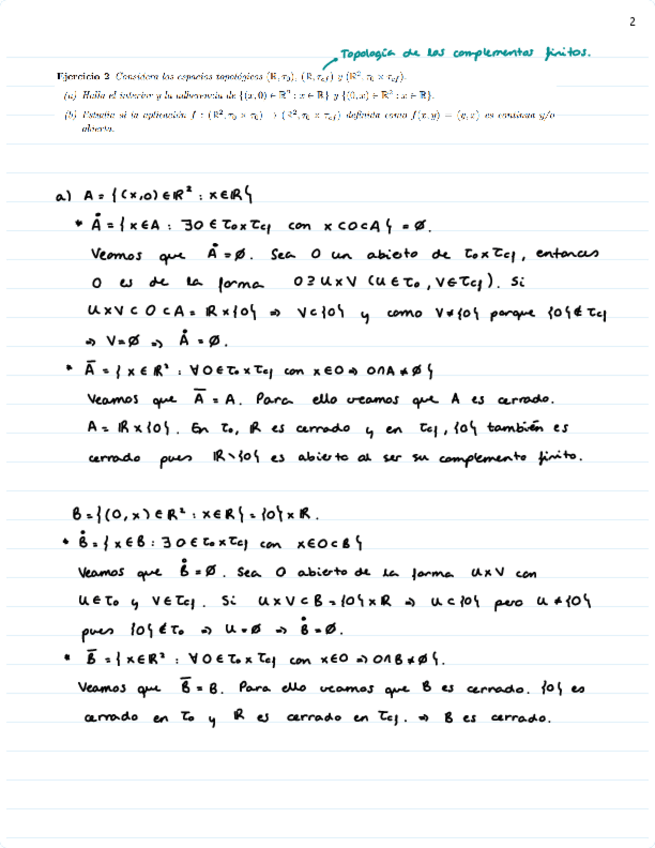 2
Topología de los complementos finitos.
Ejercicio 2 Considera los espacios topológicos (R, τ₀), (R, τcf) y (R², τ₀ × τcf).
(a) Halla el interior y la adherencia de {(x, 0) ∈ R² : x ∈ R} y {(0, x) ∈ R² : x ∈ R}.
(b) Estudia si la aplicación f : (R², τ₀ × τ₀) → (R², τ₀ × τcf) definida como f(x, y) = (y, x) es continua y/o
abierta.
a) A = {(x,0) ∈ R² : x ∈ R}
• Å = {x ∈ A : ∃O ∈ τ₀ x τcf con x ⊂ O ⊂ A} = ∅.
Veamos que Å = ∅. Sea O un abierto de τ₀ x τcf, entonces
O es de la forma O ⊇ U x V (U ∈ τ₀, V ∈ τcf). Si
U x V ⊂ O ⊂ A = R x {0} ⇒ V ⊂ {0} y como V ≠ {0} porque {0} ∉ τcf
⇒ V = ∅ ⇒ Å = ∅.
• Ā = {x ∈ R² : ∀O ∈ τ₀ x τcf con x ∈ O ⇒ O ∩ A ≠ ∅}
Veamos que Ā = A. Para ello veamos que A es cerrado.
A = R x {0}. En τ₀, R es cerrado y en τcf, {0} también es
cerrado pues R \ {0} es abierto al ser su complemento finito.
B = {(0, x) ∈ R² : x ∈ R} = {0} x R.
• B̊ = {x ∈ B : ∃O ∈ τ₀ x τcf con x ∈ O ⊂ B}
Veamos que B̊ = ∅. Sea O abierto de la forma U x V con
U ∈ τ₀ y V ∈ τcf. Si U x V ⊂ B = {0} x R ⇒ U ⊂ {0} pero U ≠ {0}
pues {0} ∉ τ₀ ⇒ U = ∅ ⇒ B̊ = ∅.
• B̄ = {x ∈ R² : ∀O ∈ τ₀ x τcf con x ∈ O ⇒ O ∩ B ≠ ∅}.
Veamos que B̄ = B. Para ello veamos que B es cerrado. {0} es
cerrado en τ₀ y R es cerrado en τcf. ⇒ B es cerrado.